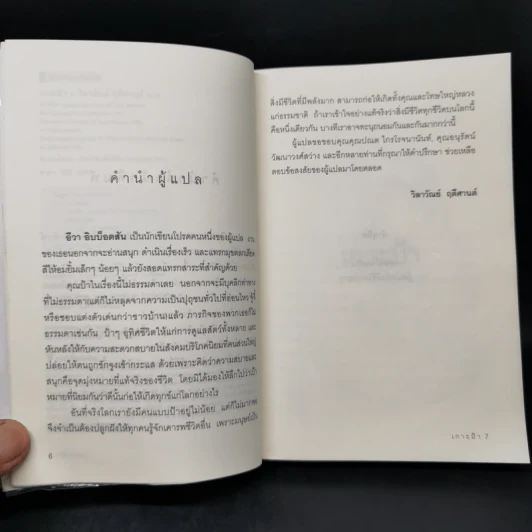 คำนำผู้แปล
อีวา อิบบ็อตสัน เป็นนักเขียนโปรดคนหนึ่งของผู้แปล งาน
ของเธอนอกจากจะอ่านสนุก ดำเนินเรื่องเร็ว และแทรกมุขตลกเสียด
สีให้อมยิ้มเล็กๆ น้อยๆ แล้วยังสอดแทรกสาระที่สำคัญด้วย
คุณป้าในเรื่องนี้ไม่ธรรมดาเลย นอกจากจะมีบุคลิกท่าทาง
ที่ไม่ธรรมดา(แต่ก็ไม่หลุดจากความเป็นปุถุชนทั่วไปที่อ่อนไหว ขี้
หรือชอบแต่งตัวเด่นกว่าชาวบ้าน)แล้ว ภารกิจของพวกเธอก็ไม่
ธรรมดาเช่นกัน ป้าๆ อุทิศชีวิตให้แก่การดูแลสัตว์ทั้งหลาย และ
หันหลังให้กับความสะดวกสบายในสังคมบริโภคนิยมที่คนส่วนใหญ่
ปล่อยให้ตนถูกชักจูงเข้ากระแส ด้วยเพราะคิดว่าความสบายและ
สนุกคือจุดมุ่งหมายที่แท้จริงของชีวิต โดยมิได้มองให้ลึกไปว่าเป้า
หมายที่นิยมกันว่าดีนั้นก่อให้เกิดทุกข์แก่โลกอย่างไร
อันที่จริงโลกเรายังมีคนแบบป้าอยู่ไม่น้อย แต่ก็ไม่มากพอ
จึงจำเป็นต้องปลูกฝังให้ทุกคนรู้จักเคารพชีวิตอื่น เพราะมนุษย์เป็น
6
สิ่งมีชีวิตที่มีพลังมาก สามารถก่อให้เกิดทั้งคุณและโทษใหญ่หลวง
แก่ธรรมชาติ ถ้าเราเข้าใจอย่างแท้จริงว่าสิ่งมีชีวิตทุกชีวิตบนโลกนี้
คือหนึ่งเดียวกัน บางทีเราอาจทะนุถนอมกันและกันมากกว่านี้
ผู้แปลขอขอบคุณคุณปณต ไกรโรจนานันท์, คุณอนุรัตน์
วัฒนาวงศ์สว่าง และอีกหลายท่านที่กรุณาให้คำปรึกษา ช่วยเหลือ
ตอบข้อสงสัยของผู้แปลมาโดยตลอด
วิลาวัณย์ ฤดีศานต์
เกาะป้า 7